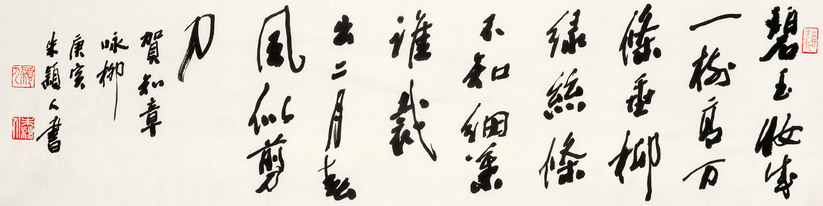 碧玉妝成
一樹高万
條垂柳
綠絲條
不知細葉
誰裁
出二月春
風似剪
刀
賀知章
咏柳
庚寅
朱穎人書